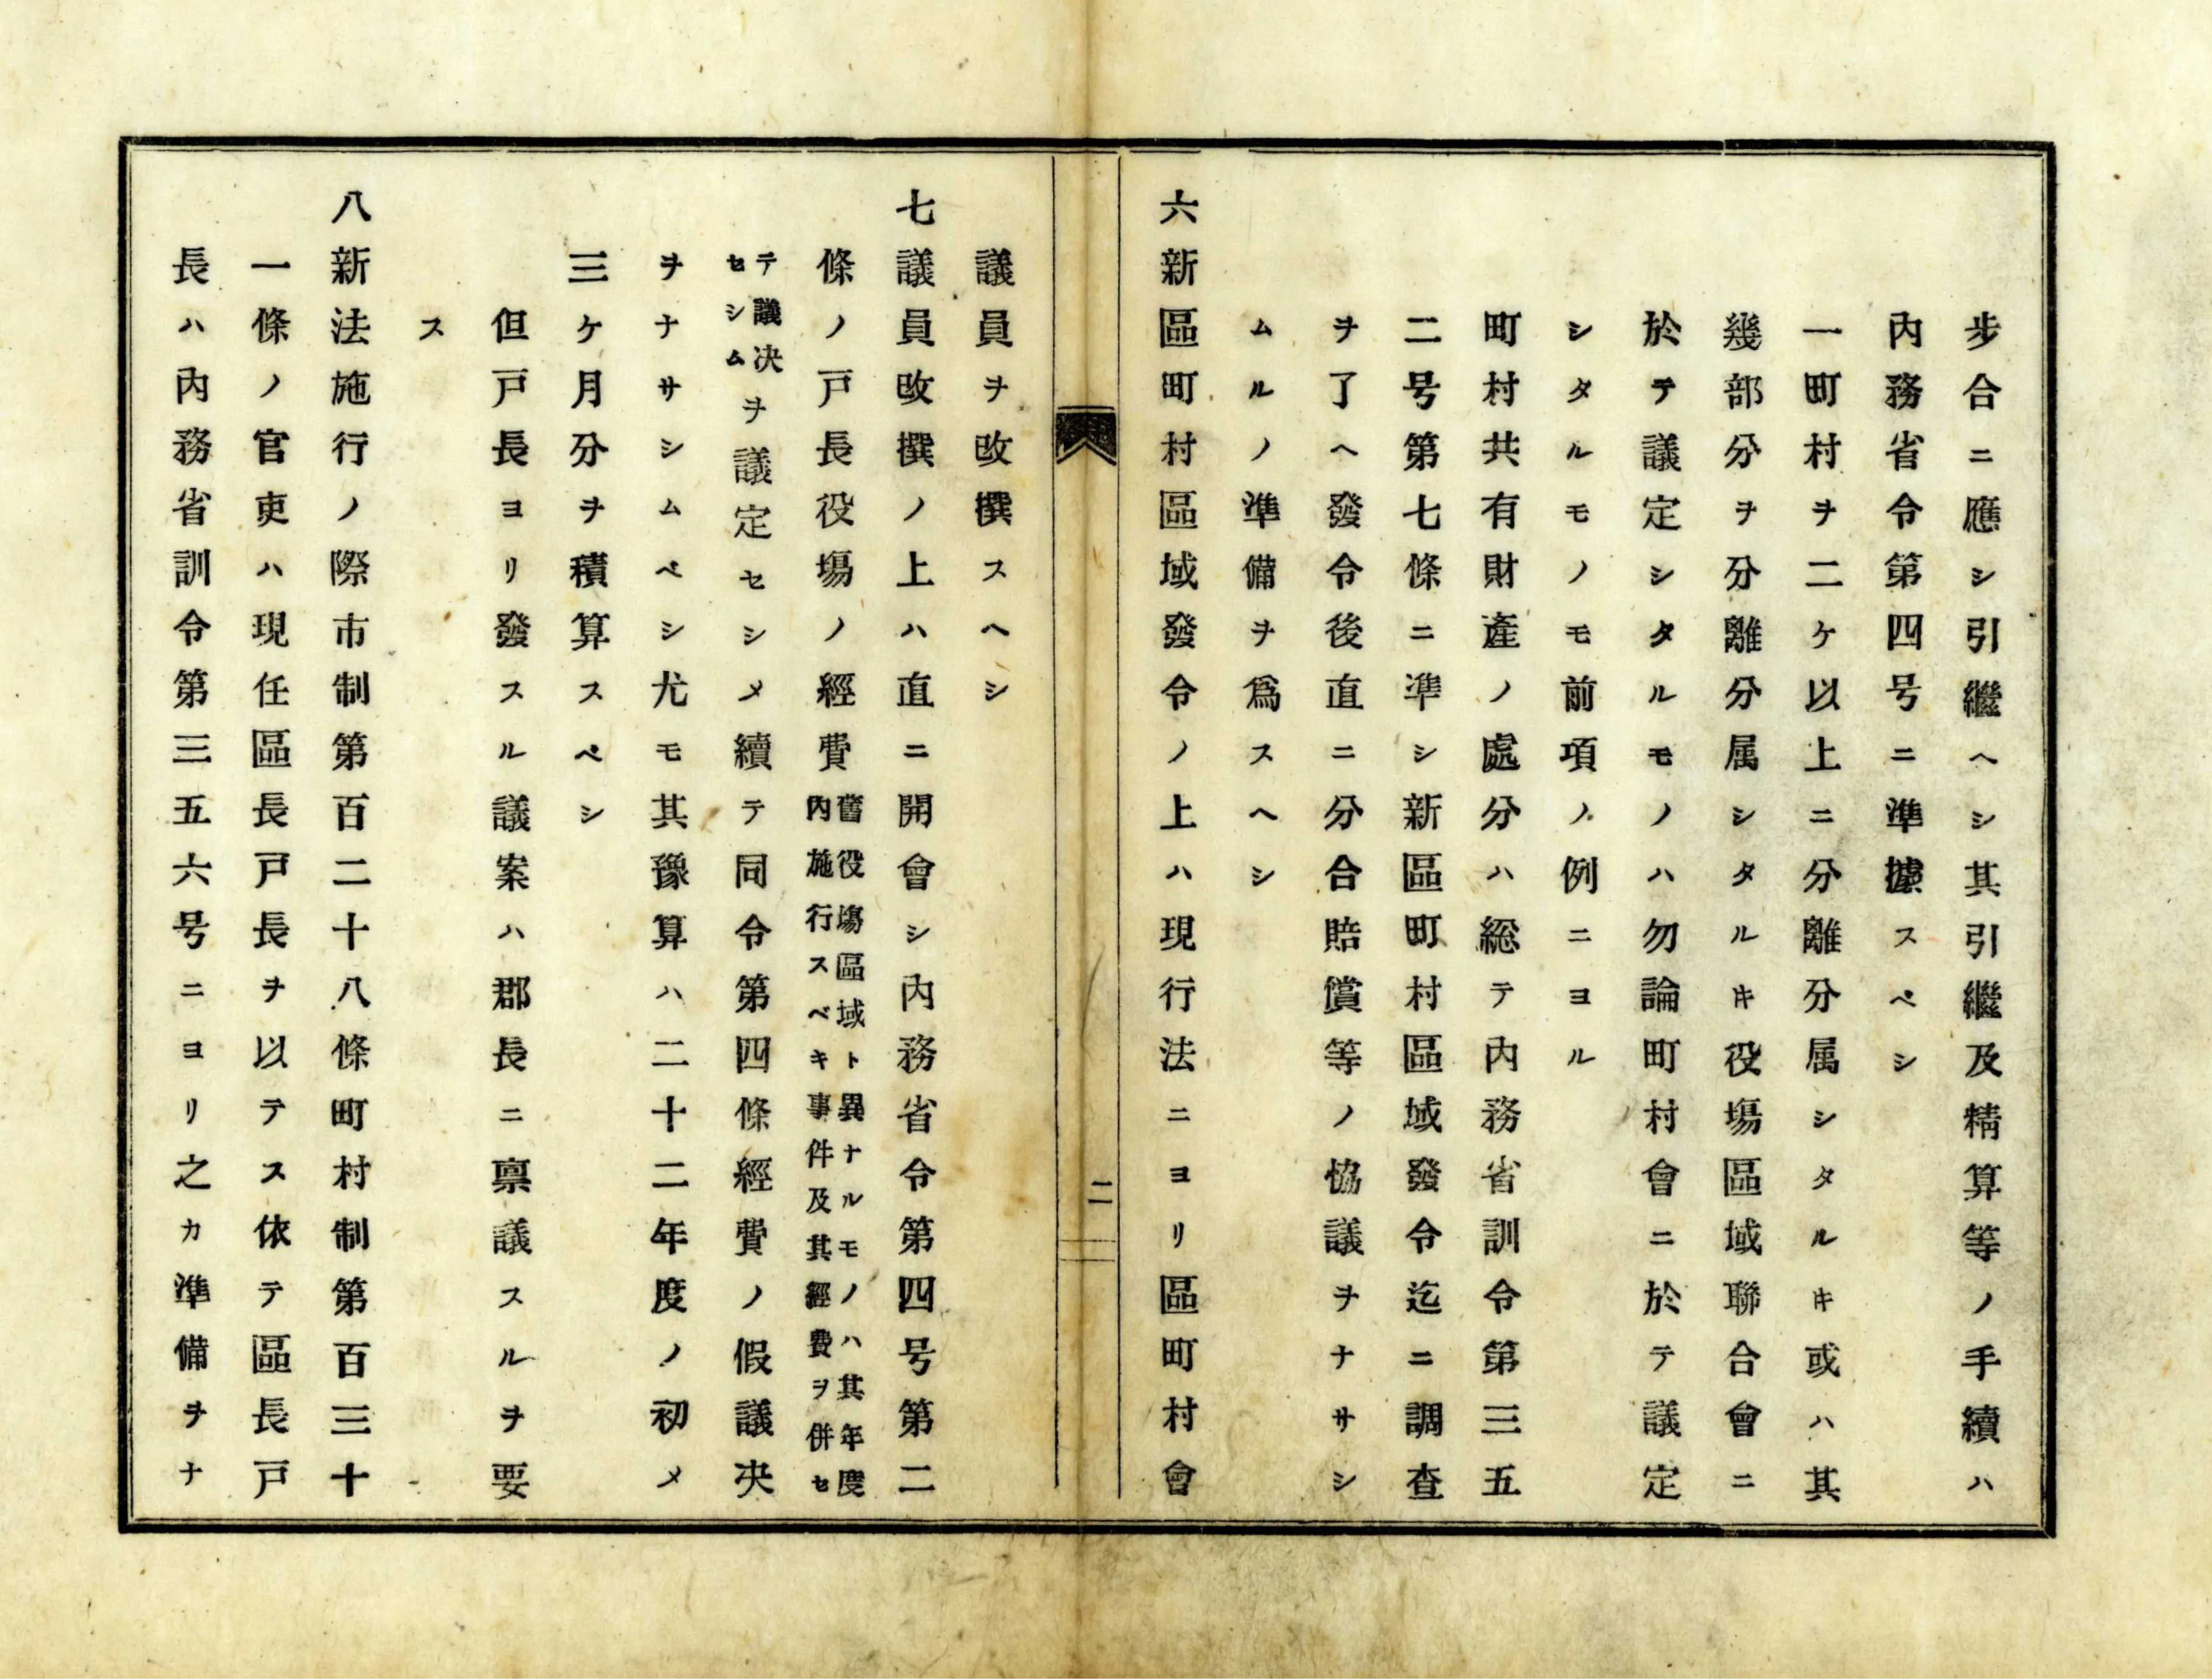 步合ニ應シ引繼ヘシ其引繼及精算等ノ手續ハ
內務省令第四号ニ準據スベシ
一町村ヲ二ケ以上ニ分離分属シタルキ或ハ其
幾部分ヲ分離分属シタルキ役塲區域聯合會ニ
於テ議定シタルモノハ勿論町村會ニ於テ議定
シタルモノモ前項ノ例ニヨル
町村共有財產ノ處分ハ総テ內務省訓令第三五
二号第七條ニ凖シ新區町村區域發令迄ニ調査
ヲ了ヘ發令後直ニ分合賠償等ノ恊議ヲナサシ
ムルノ準備ヲ爲スヘシ
六新區町村區域發令ノ上ハ現行法ニヨリ區町村會
二
議員ヲ改撰スヘシ
七議員改撰ノ上ハ直ニ開會シ內務省令第四号第二
條ノ戸長役塲ノ經費
舊役塲區域ト異ナルモノハ其年度
內施行スベキ事件及其經費ヲ併セ
テ議决
セシム
ヲ議定セシメ續テ同令第四條經費ノ假議决
ヲナサシムベシ尤モ其豫算ハ二十二年度ノ初メ
三ケ月分ヲ積算スベシ
但戸長ヨリ發スル議案ハ郡長ニ禀議スルヲ要
ス
八新法施行ノ際市制第百二十八條町村制第百三十
一條ノ官吏ハ現任區長戸長ヲ以テス依テ區長戸
長ハ內務省訓令第三五六号ニヨリ之カ準備ヲナ